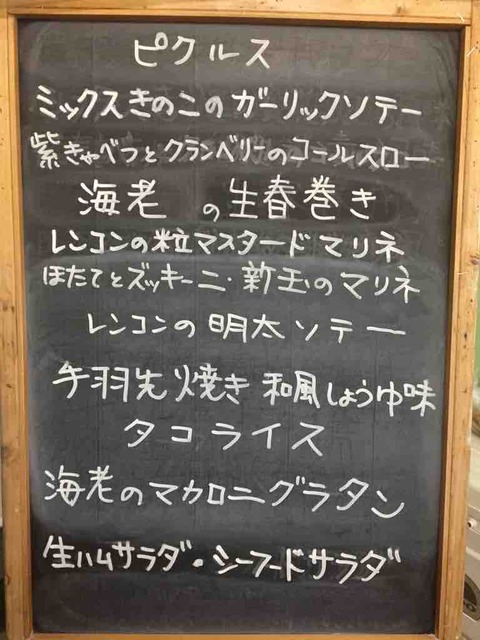 ピクルス
ミックスきのこのガーリックソテー
紫きゃべつとクランベリーのコールスロー
海老 の生春巻き
レンコンの粒マスタードマリネ
ほたてとズッキーニ・新玉のマリネ
レンコンの明太ソテー
手羽先焼き 和風しょうゆ味
タコライス
海老のマカロニグラタン
生ハムサラダ・シーフードサラダ